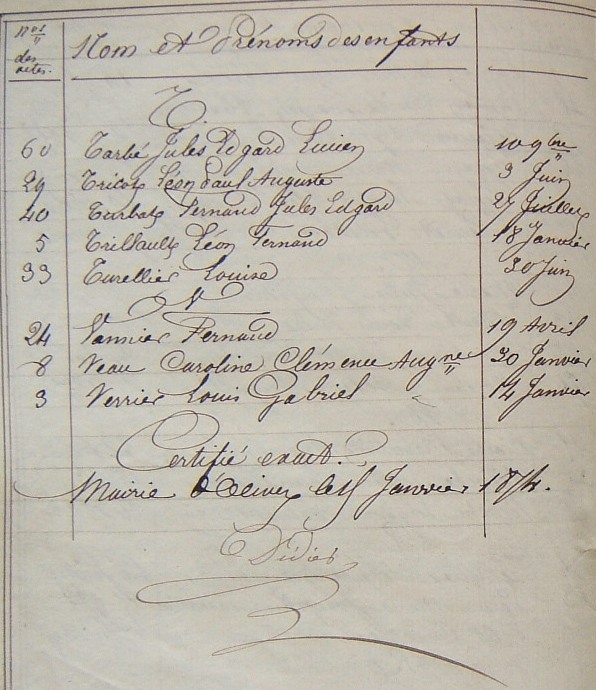 Nos des actes. Nom et Prénoms des enfants
T.
60 Tarbé Jules Edgard Lucien 10 9bre
29 Tricot Léon Paul Auguste 3 Juin
40 Turbat Fernand Jules Edgard 27 Juillet
5 Trillault Léon Fernand 18 Janvier
33 Turellier Louise 30 Juin
V
24 Vannier Fernand 19 Avril
8 Veau Caroline Clémence Augne 30 Janvier
3 Verrier Louis Gabriel 14 Janvier
Certifié exact.
Mairie d'Olivet le Janvier 1874.